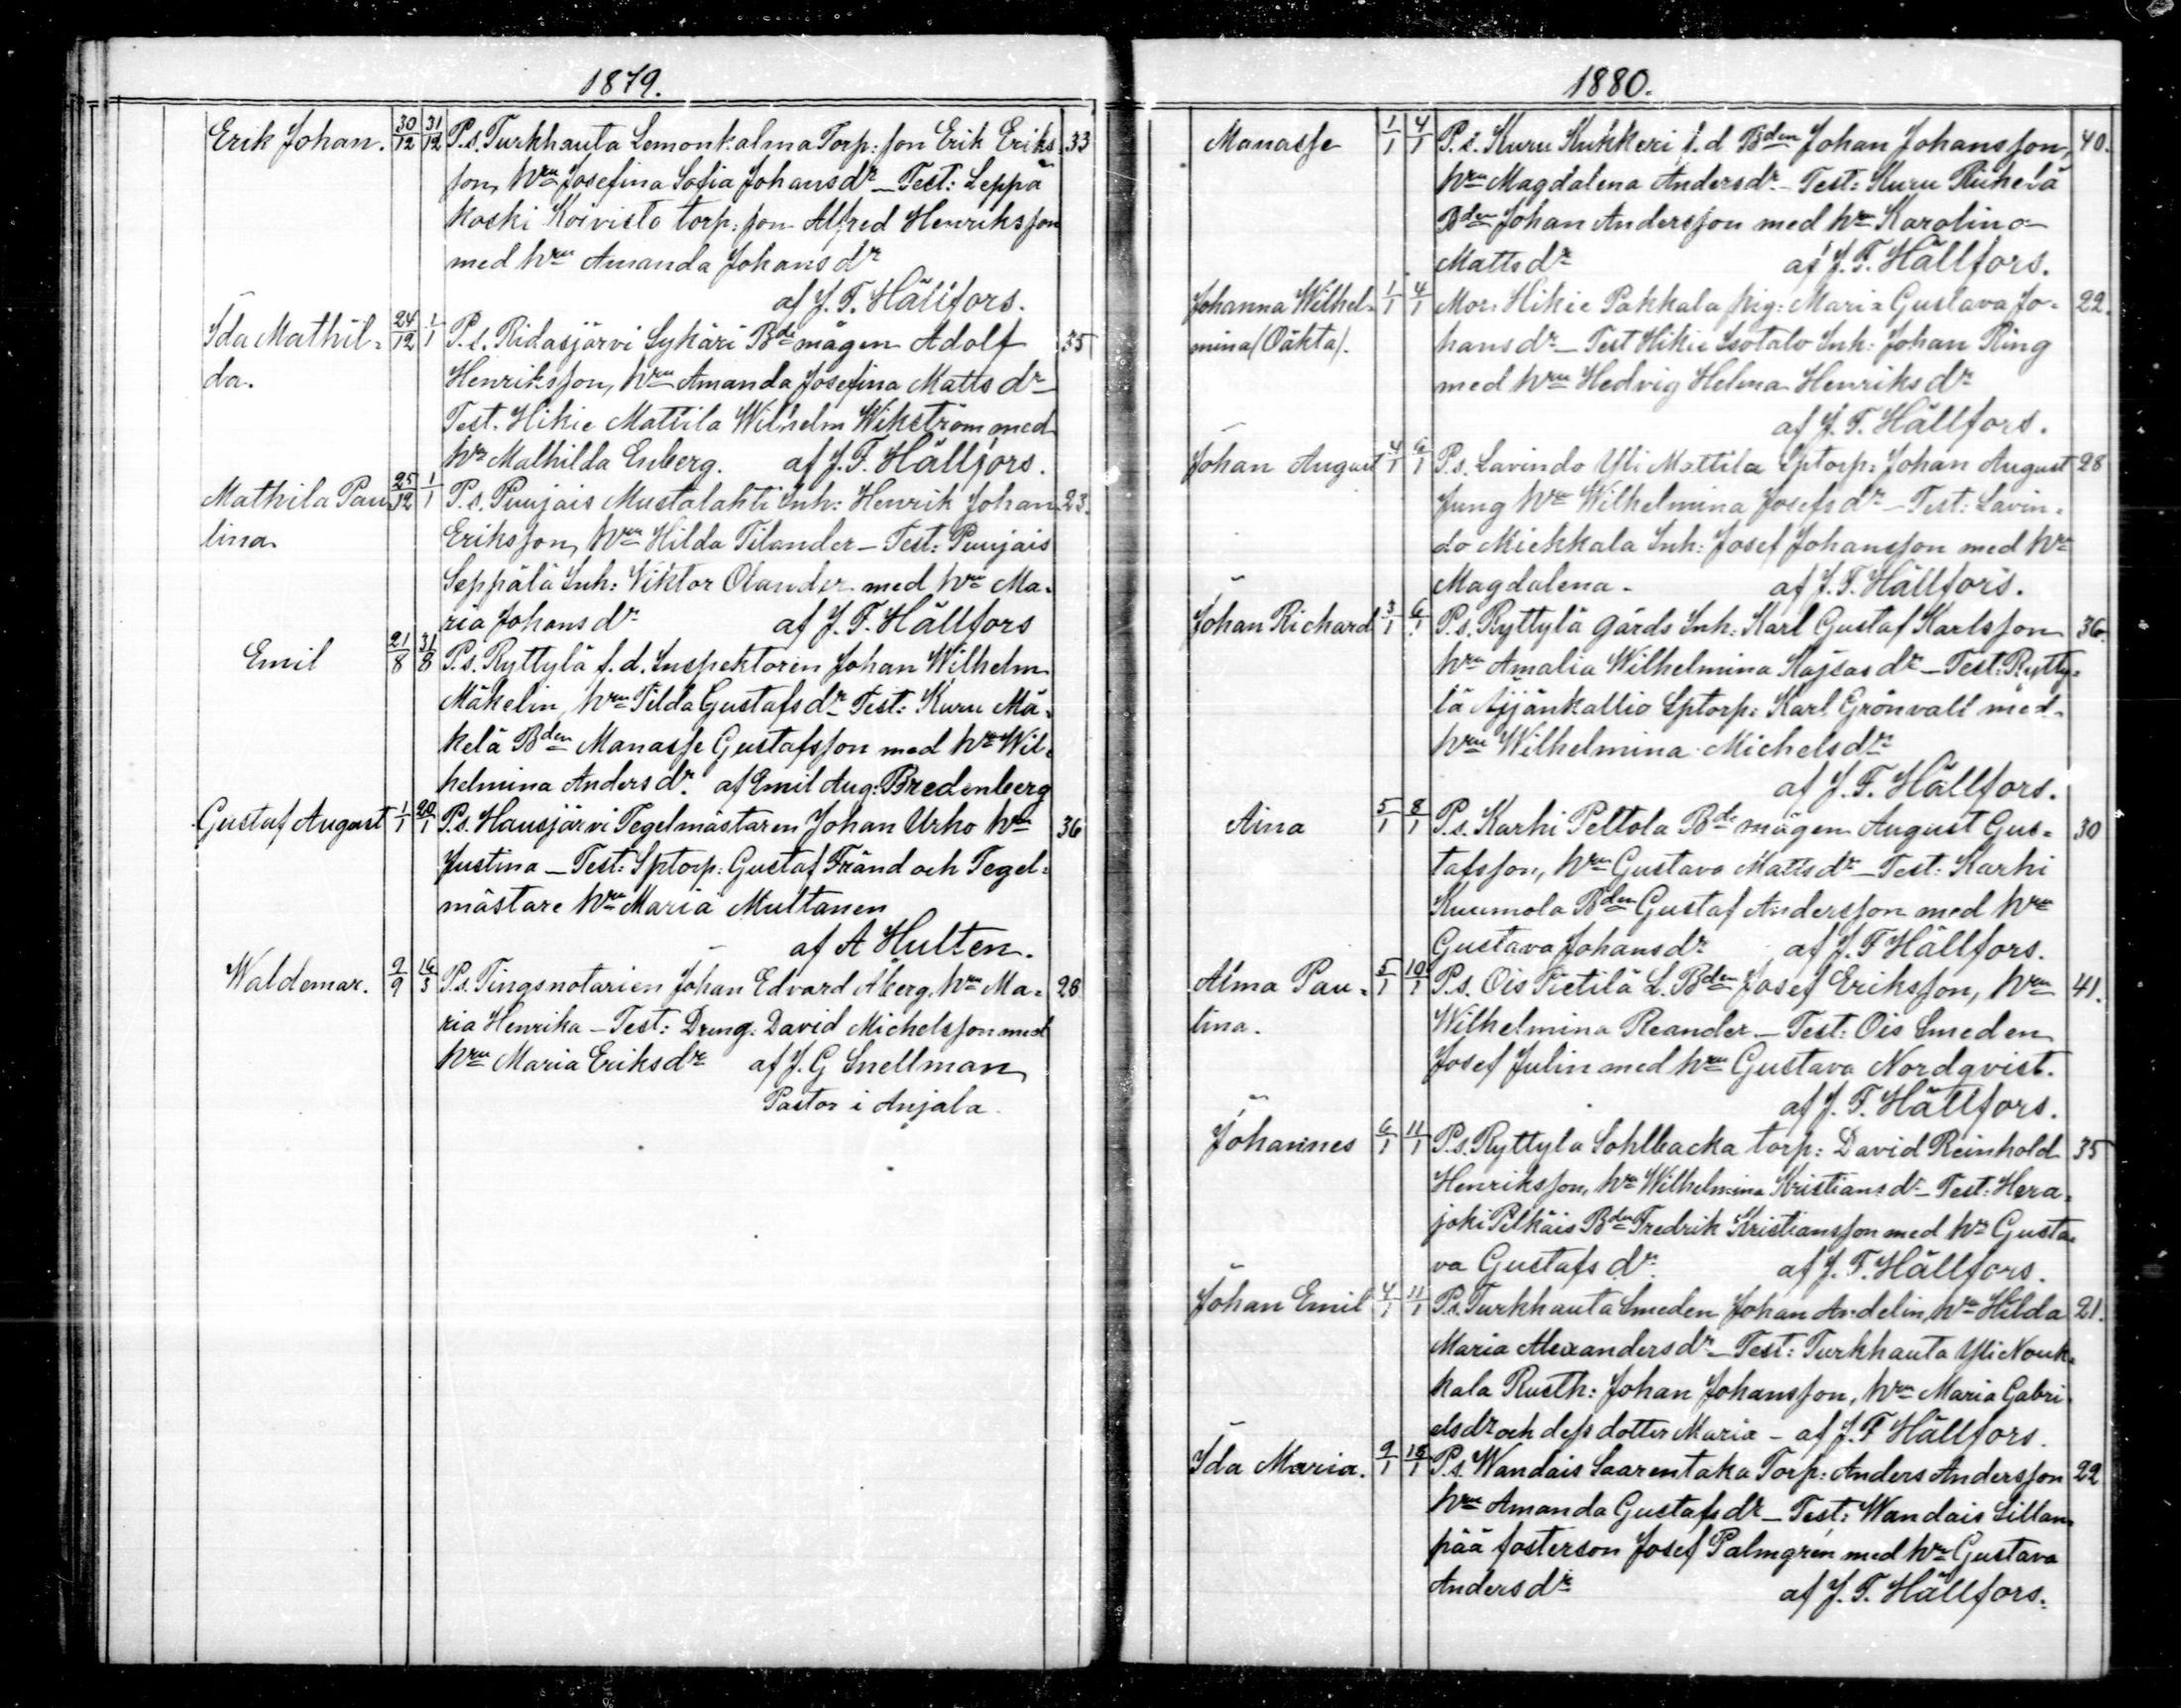 1879.
Erik Johan. 30/12 31/12 P.s. Turkhauta Lemonkalma Torp: son Erik Eriks 33
son, Hru Josefina Sofia Johansdr – Test: Leppä
koski Koivisto torp: son Alfred Henriksson
med hru Amanda Johansdr
af J. F. Hällfors.
Ida Mathil- 24/12 1/1 P.s. Ridasjärvi Sykäri Bde mågen Adolf 35
da. Henriksson, Hru Amanda Josefina Matts dr
Test. Hikie Mattila Wilhelm Wikström med
hru Mathilda Enberg. af J. F. Hällfors.
Mathila Pau- 25/12 1/1 P.s. Pujais Mustalahti Inh: Henrik Johan 23.
lina Eriksson, Hru Hilda Tilander – Test: Pujais
Seppälä Inh: Viktor Olander med hru Ma-
ria Johans dr af J. F. Hällfors
Emil 21/8 31/8 P.s. Ryttylä f.d. Inspektoren Johan Wilhelm
Mäkelin, hru Tilda Gustafsdr Test: Kuru Mä-
kelä Bden Manasse Gustafsson med hru Wil-
helmina Andersdr. af Emil Aug: Bredenberg
Gustaf August 1/1 20/1 P.s. Hausjärvi Tegelmästaren Johan Urho hru 36
Justina – Test: Sptorp: Gustaf Fränd och Tegel-
mästare hru Maria Multanen
af A Hulten.
Waldemar. 2/9 16/3 P.s. Tingsnotarien Johan Edvard Åberg. hru Ma- 28
ria Henrika – Test: Dreng: David Michelsson med
hru Maria Eriksdr af J. G Snellman
Pastor i Anjala.
1880.
Manasse 1/1 4/1 P.s. Kuru Kukkeri f.d Bden Johan Johansson, 40.
hru Magdalena Andersdr – Test: Kuru Rihelä
Bden Johan Andersson med hru Karolina
Mattsdr af J. F. Hällfors.
Johanna Wilhel- 1/1 4/1 Mor: Hikie Pakkala pig: Maria Gustava Jo- 22.
mina (Oäkta). hans dr – Test Hikie Isotalo Inh: Johan Ring
med hru Hedvig Helena Henriks dr
af J. F. Hällfors.
Johan August 4/1 6/1 P.s. Lavindo Yli Mattila Sptorp: Johan August 28
Jung hru Wilhelmina Josefsdr – Test: Lavin-
do Mickkala Inh: Josef Johansson med hru
Magdalena. af J. F. Hällfors.
Johan Richard 3/1 6/1 P.s. Ryttylä gårds Inh: Karl Gustaf Karlsson 36.
hru Amalia Wilhelmina Kajsasdr – Test: Rytty-
lä Äijänkallio Sptorp: Karl Grönvall med
hru Wilhelmina Michelsdr
af J. F. Hällfors.
Aina 5/1 8/1 P.s. Karhi Peltola Bde mågen August Gus- 30
tafsson, hru Gustava Mattsdr – Test: Karhi
Kuumola Bden Gustaf Andersson med hru
Gustava Johansdr af J. F Hällfors.
Alma Pau- 5/1 10/1 P.s. Ois Pietilä L. Bden Josef Eriksson, hru 41.
lina. Wilhelmina Reander – Test: Ois Smeden
Josef Julin med hru Gustava Nordqvist.
af J. F. Hällfors.
Johannes 6/1 11/1 P.s. Ryttylä Sohlbacka torp: David Reinhold 35
Henriksson, hru Wilhelmina Kristiansdr – Test: Hera-
joki Pelkäis Bden Fredrik Kristiansson med hru Gusta-
va Gustafs dr. af J. F. Hällfors.
Johan Emil 4/1 11/1 P.s. Turkhauta Smeden Johan Andelin, hru Hilda 21.
Maria Alexandersdr – Test: Turkhauta Yli Nouk-
kala Rusth: Johan Johansson, hru Maria Gabri-
elsdr och dess dotter Maria – af J. F Hällfors.
Ida Maria. 9/1 18/1 P.s. Wandais Saarentaka Torp: Anders Andersson 22
hru Amanda Gustafsdr – Test: Wandais Sillan-
pää fosterson Josef Palmgren med hru Gustava
Andersdr af J. F. Hällfors.